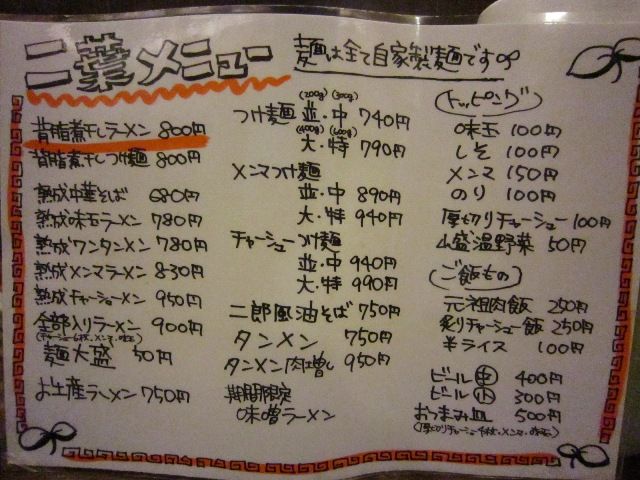 二葉メニュー
麺は全て自家製麺です
背脂煮干しラーメン 800円
背脂煮干しつけ麺 800円
熟成中華そば 680円
熟成味玉ラーメン 780円
熟成ワンタンメン 780円
熟成メンマラーメン 830円
熟成チャーシューメン 950円
全部入りラーメン 900円
麺大盛 50円
お土産ラーメン 750円
(200g) (300g)
つけ麺 並・中 740円
(400g) (600g)
大・特 790円
メンマつけ麺
並・中 890円
大・特 940円
チャーシューつけ麺
並・中 940円
大・特 990円
二郎風油そば 750円
タンメン 750円
タンメン肉増し 950円
期間限定
味噌ラーメン
トッピング
味玉 100円
しそ 100円
メンマ 150円
のり 100円
厚切りチャーシュー 100円
山盛温野菜 50円
ご飯もの
元祖肉飯 250円
炙りチャーシュー飯 250円
半ライス 100円
ビール 中 400円
ビール 小 300円
おつまみ皿 500円
(厚切りチャーシュー4枚・メンマ・味玉)